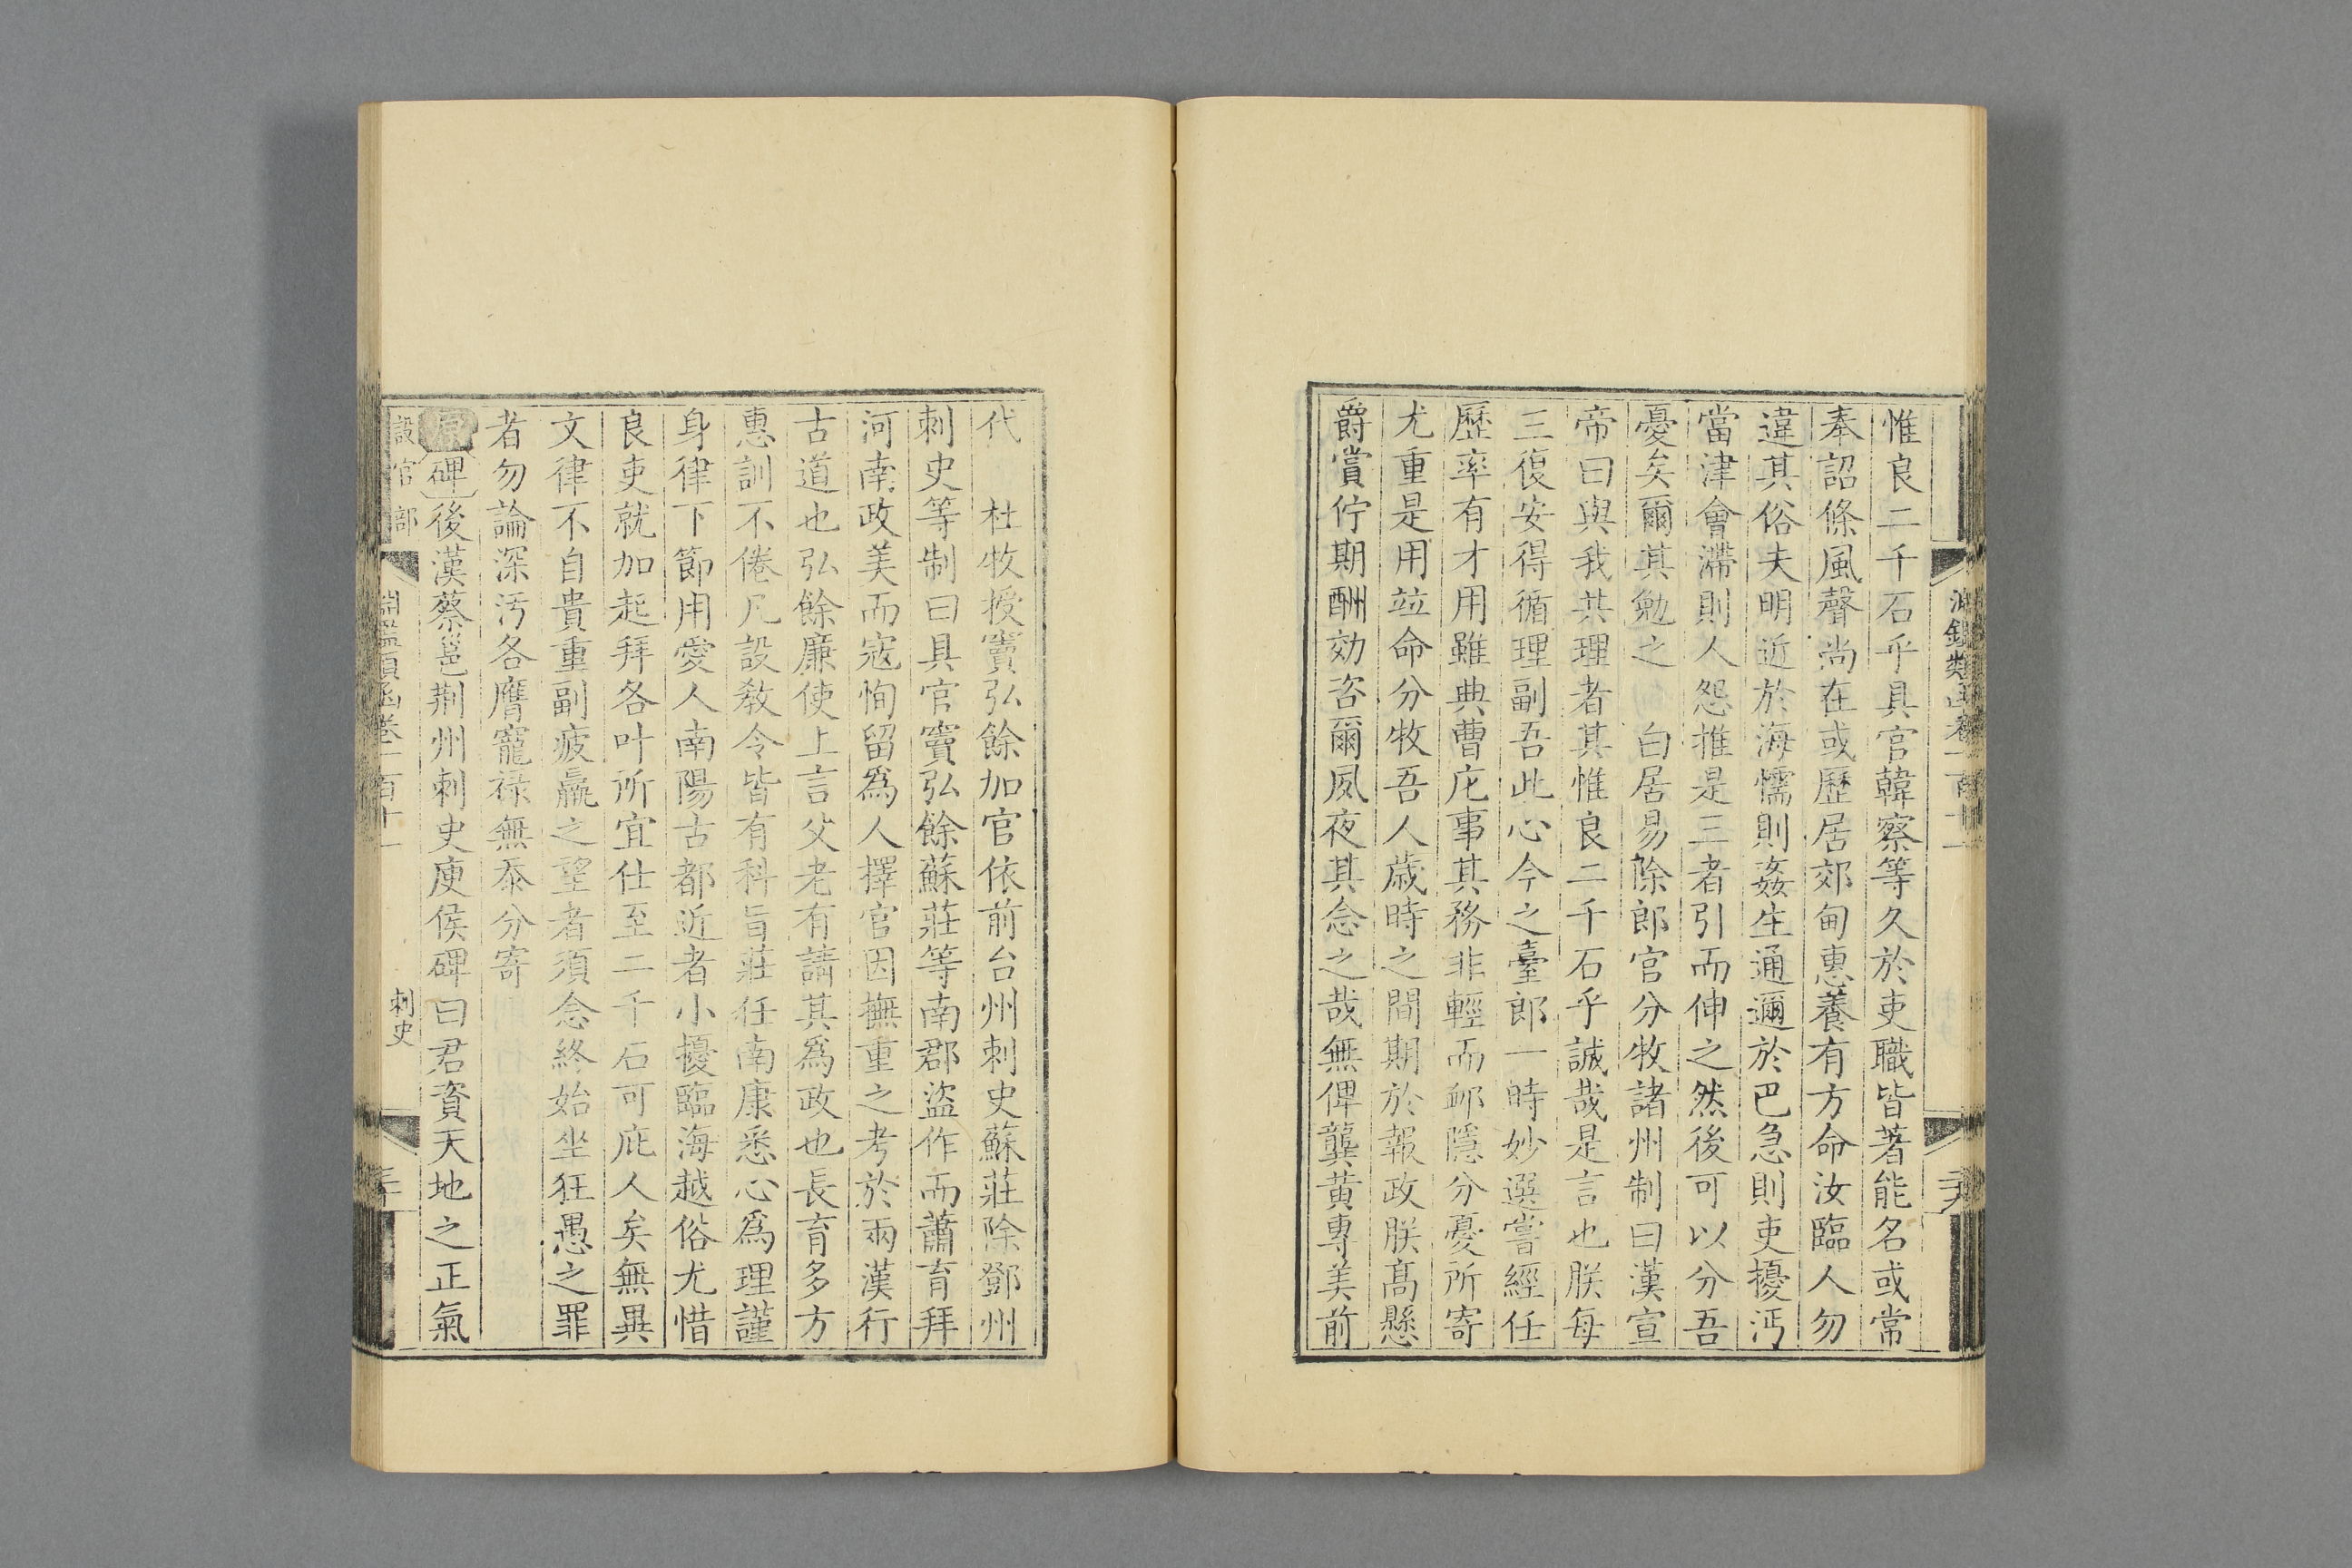 惟良二千石乎具官韓察等久於吏職皆著能名或常
奉詔條風聲尚在或歷居郊甸惠養有方命汝臨人勿
違其俗夫明近於海懦則姦生通邇於巴急則吏擾沔
當津會滯則人怨推是三者引而伸之然後可以分吾
憂矣爾其勉之 白居易除郎官分牧諸州制曰漢宣
帝曰與我共理者其惟良二千石乎誠哉是言也朕每
三復安得循理副吾此心今之臺郎一時妙選嘗經任
歷率有才用雖典曹庀事其務非輕而邮隱分憂所寄
尤重是用竝命分牧吾人歲時之間期於報政朕高懸
爵賞佇期酬効咨爾夙夜其念之哉無俾龔黃專美前
代 杜牧授竇弘餘加官依前台州刺史蘇莊除鄧州
刺史等制曰具官竇弘餘蘇莊等南郡盜作而蕭育拜
河南政美而寇恂留爲人擇官因撫重之考於兩漢行
古道也弘餘廉使上言父老有請其爲政也長育多方
惠訓不倦凡設教令皆有科旨莊任南康悉心爲理謹
身律下節用愛人南陽古都近者小擾臨海越俗尤惜
良吏就加起拜各叶所宜仕至二千石可庇人矣無異
文律不自貴重副疲羸之望者須念終始坐狂愚之罪
者勿論深汚各膺寵祿無忝分寄
原碑後漢蔡邕荆州刺史庾侯碑曰君資天地之正氣
設官部 淵鑑類函卷一百十一 刺史 三十